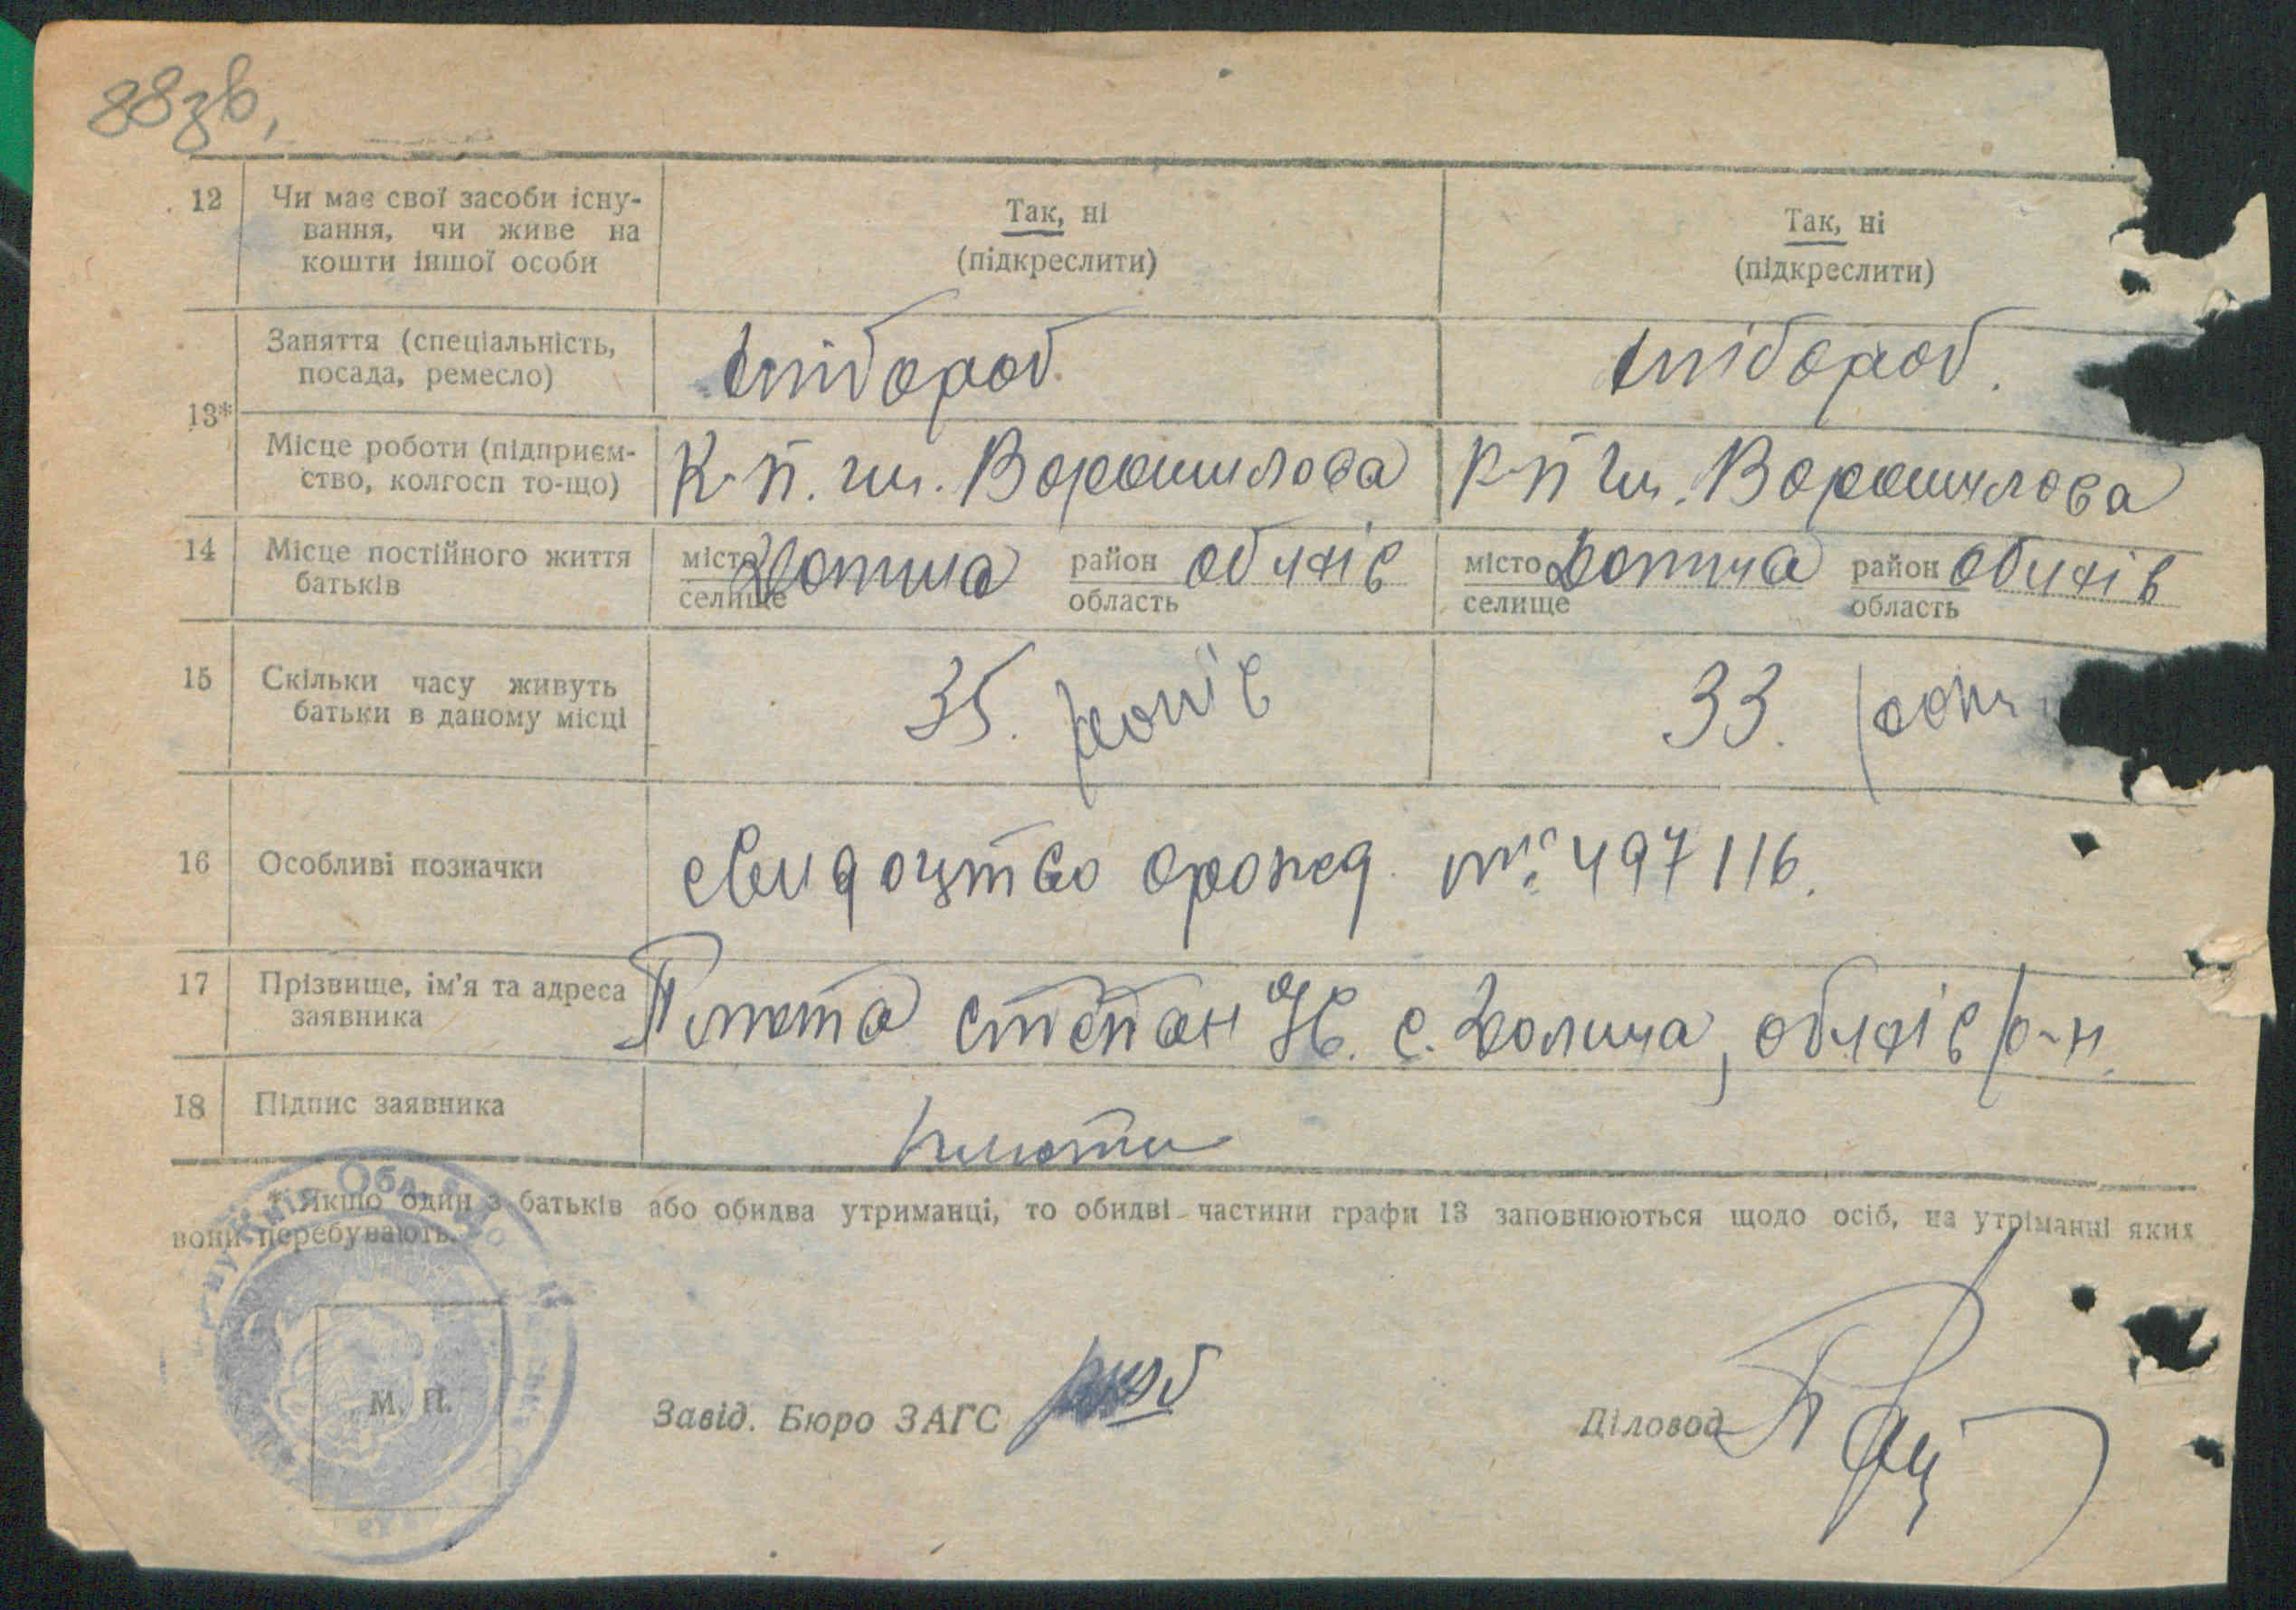 88зв,
12 Чи має свої засоби існу- Так, ні Так, ні
вання, чи живе на (підкреслити) (підкреслити)
кошти іншої особи
13* Заняття (спеціальність, хлібороб хлібороб.
посада, ремесло)
Місце роботи (підприєм- К-п. ім. Ворошилова К-п ім. Ворошилова
ство, колгосп то-що)
14 Місце постійного життя місто Долина район Обухів місто Долина район Обухів
батьків селище область селище область
15 Скільки часу живуть 35. років 33.
батьки в даному місці
16 Особливі позначки свидоцтво орожд. № 497116.
17 Прізвище, ім'я та адреса Плюта Степан с. Долина, Обухів р-н.
заявника
18 Підпис заявника Плюта
* Якщо один з батьків або обидва утриманці, то обидві частини графи 13 заповнюються щодо осіб, на утріманні яких
вони перебувають.
М. П.
Завід. Бюро ЗАГС Діловод